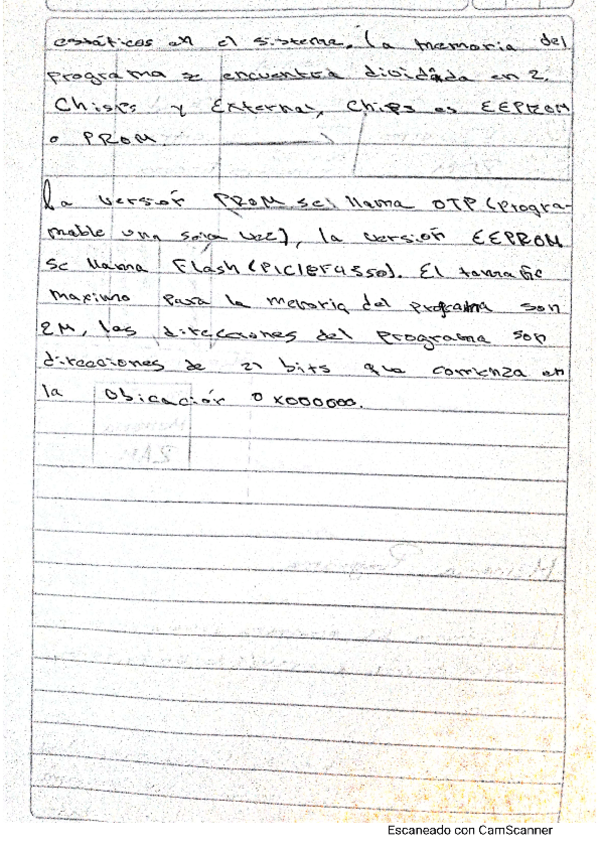 estáticos en el sistema. La memoria del
programa se encuentra dividada en 2,
Chips y External, Chips es EEPROM
o PROM.
La versión PROM sel llama OTP (Progra-
mable una sola vez), la versión EEPROM
se llama Flash (PIC18F4550). El tamaño
maximo para la memoria del programa son
2M, las direcciones del programa son
direcciones de 21 bits que comienza en
la Obicación 0x000000.
Escaneado con CamScanner